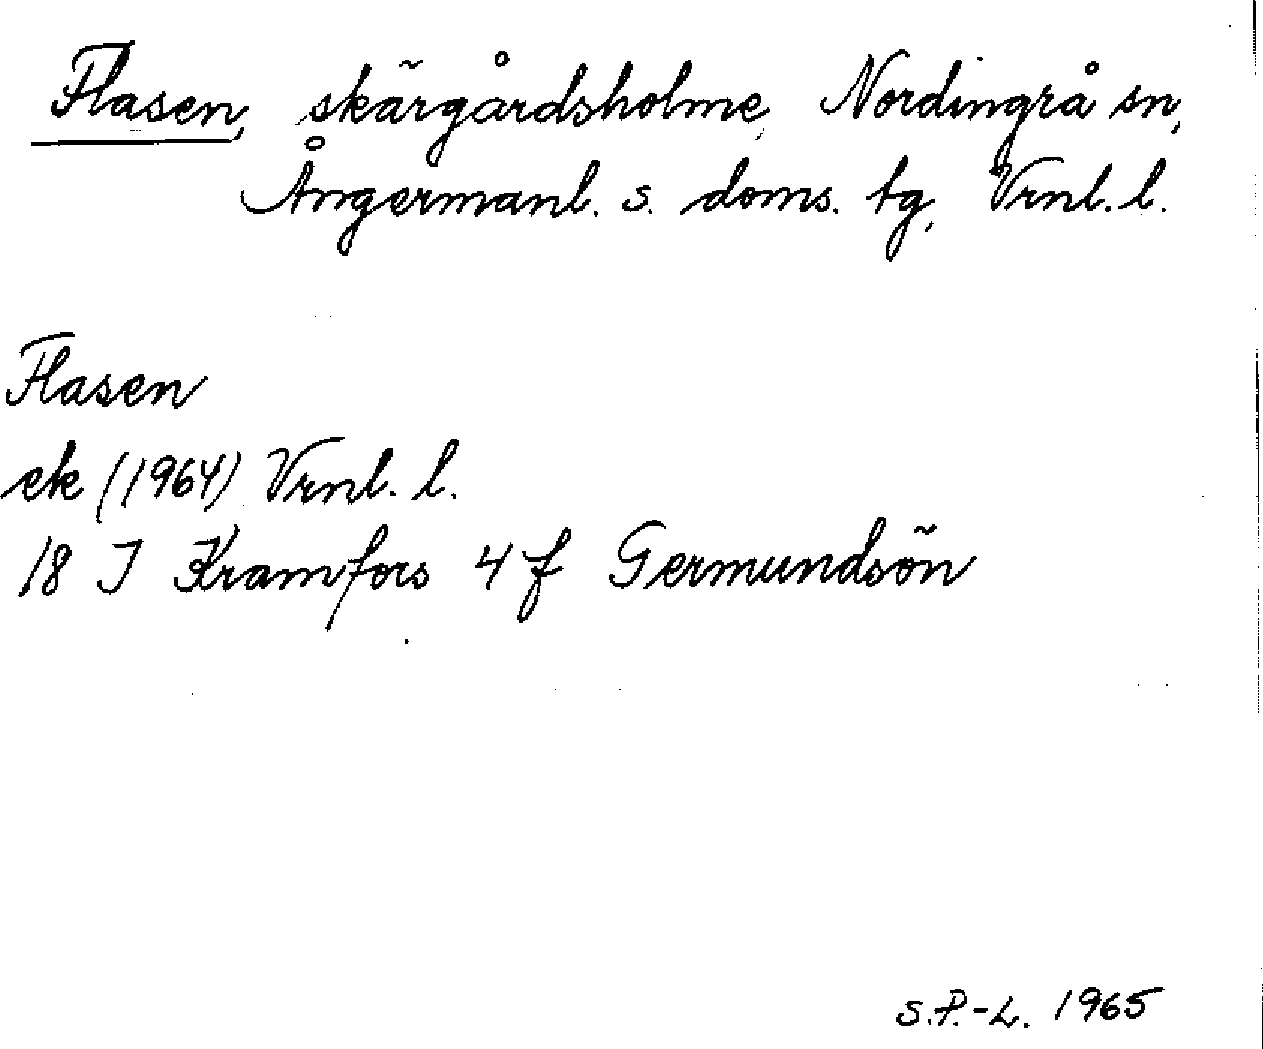 Flasen, skärgårdsholme, Nordingrå sn,
Ångermanl. s. doms. tg, Vrnl. l.
Flasen
ek (1964) Vrnl. l.
18 J Kramfors 4 f Germundsön
S.P.-L. 1965